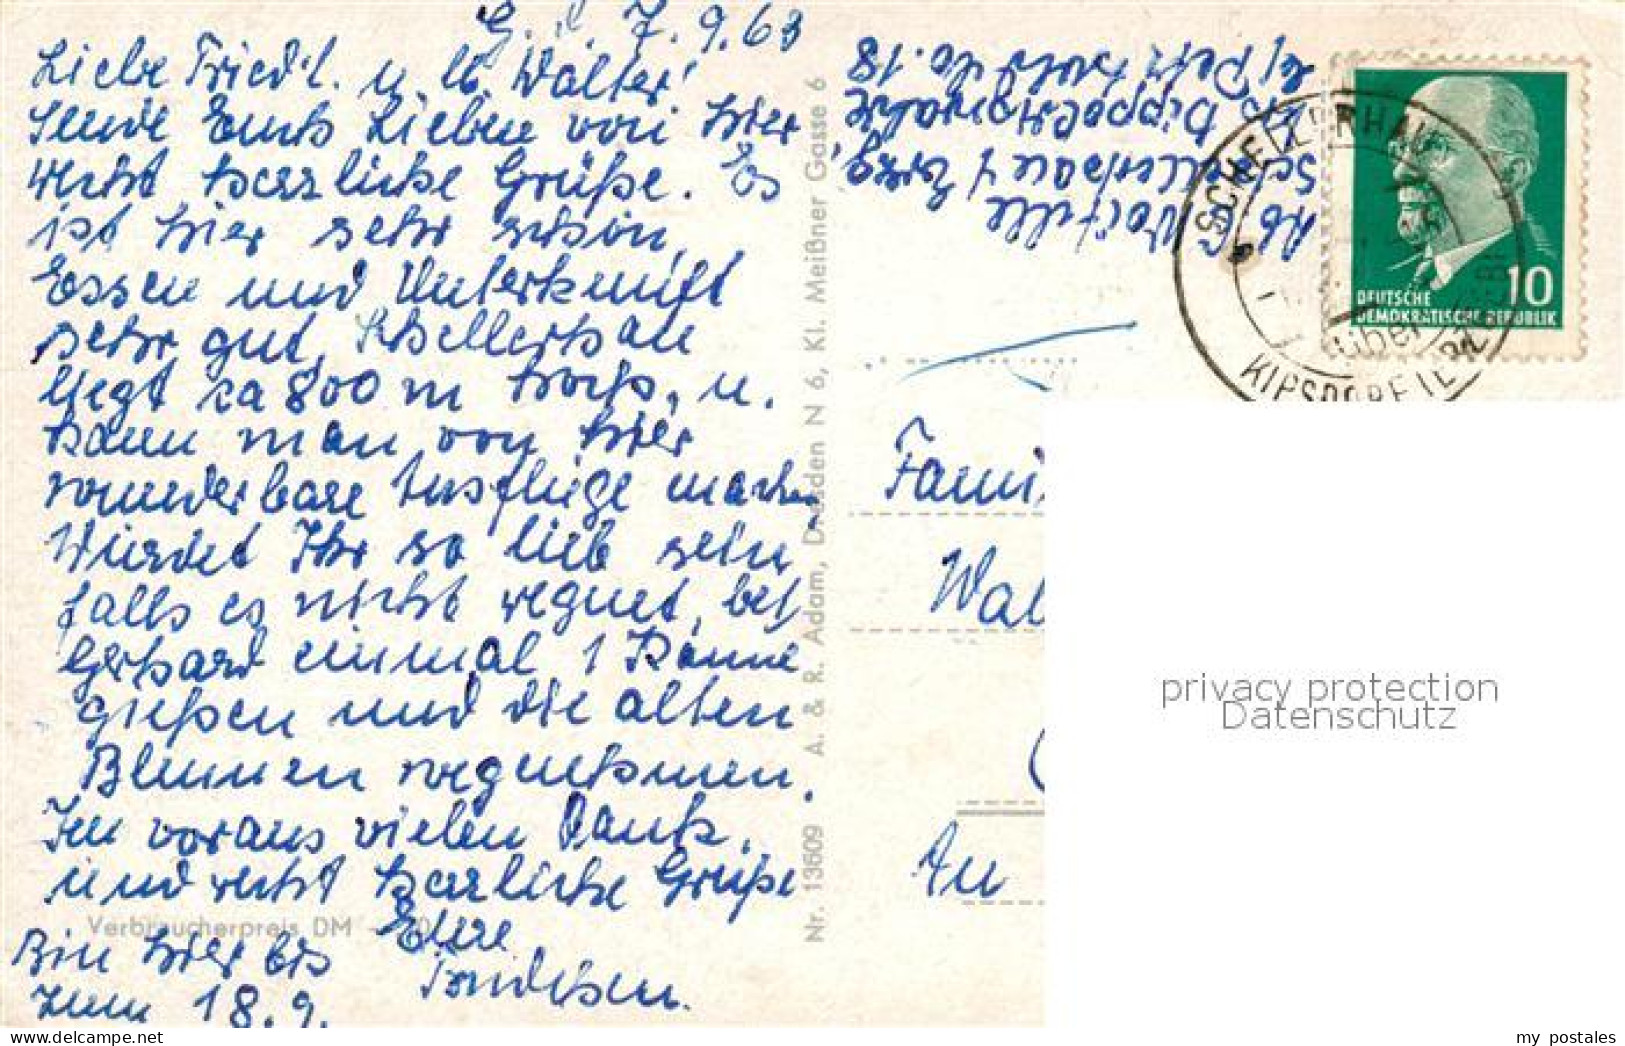 7.9.63
Liebe Friedl. u. lb. Walter!
Sende Euch Lieben von hier
recht herzliche Grüße. Es
ist hier sehr schön,
Essen und Unterkunft
sehr gut, Schellerhau
liegt ca 800 m hoch, u.
kann man von hier
wunderbare Ausflüge machen
Würdet Ihr so lieb sein
falls es nicht regnet, bei
Gerhard einmal 1 Kanne
gießen und die alten
Blumen wegnehmen.
Im voraus vielen Dank,
und recht herzliche Grüße
Eure
Bin hier bis
zum 18.9.
Verbraucherpreis DM
Nr. 13609 A. & R. Adam, Dresden N 6, Kl. Meißner Gasse 6
Ab
Schellerhau / Erzg.
Dippoldiswalde
18
SCHELLERHAU
über
KIPSDORF (ERZGEB)
10
DEUTSCHE
DEMOKRATISCHE REPUBLIK
Fami
Wal
An
privacy protection
Datenschutz
my postales